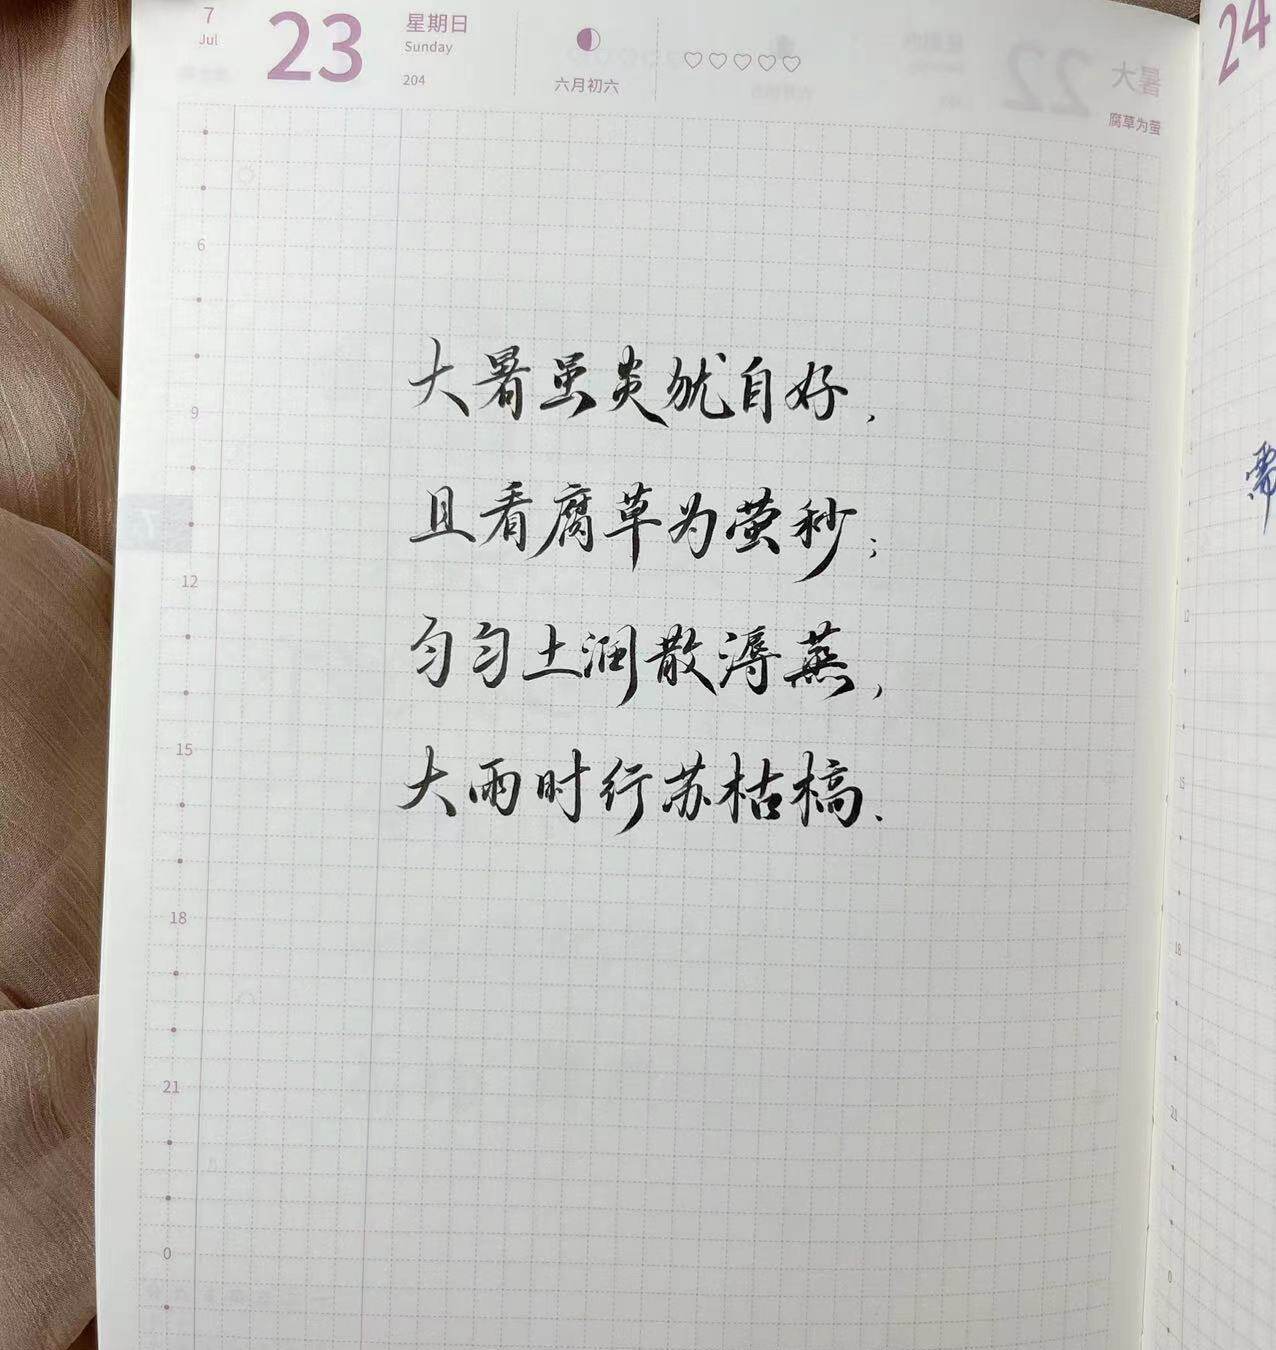 7
Jul
23
星期日
Sunday
204
六月初六
大暑
腐草为萤
24
大暑虽炎犹自好,
且看腐草为萤秒;
匀匀土润散溽蒸,
大雨时行苏枯槁.
6
9
12
15
18
21
0
7
需
12
15
18
21
0